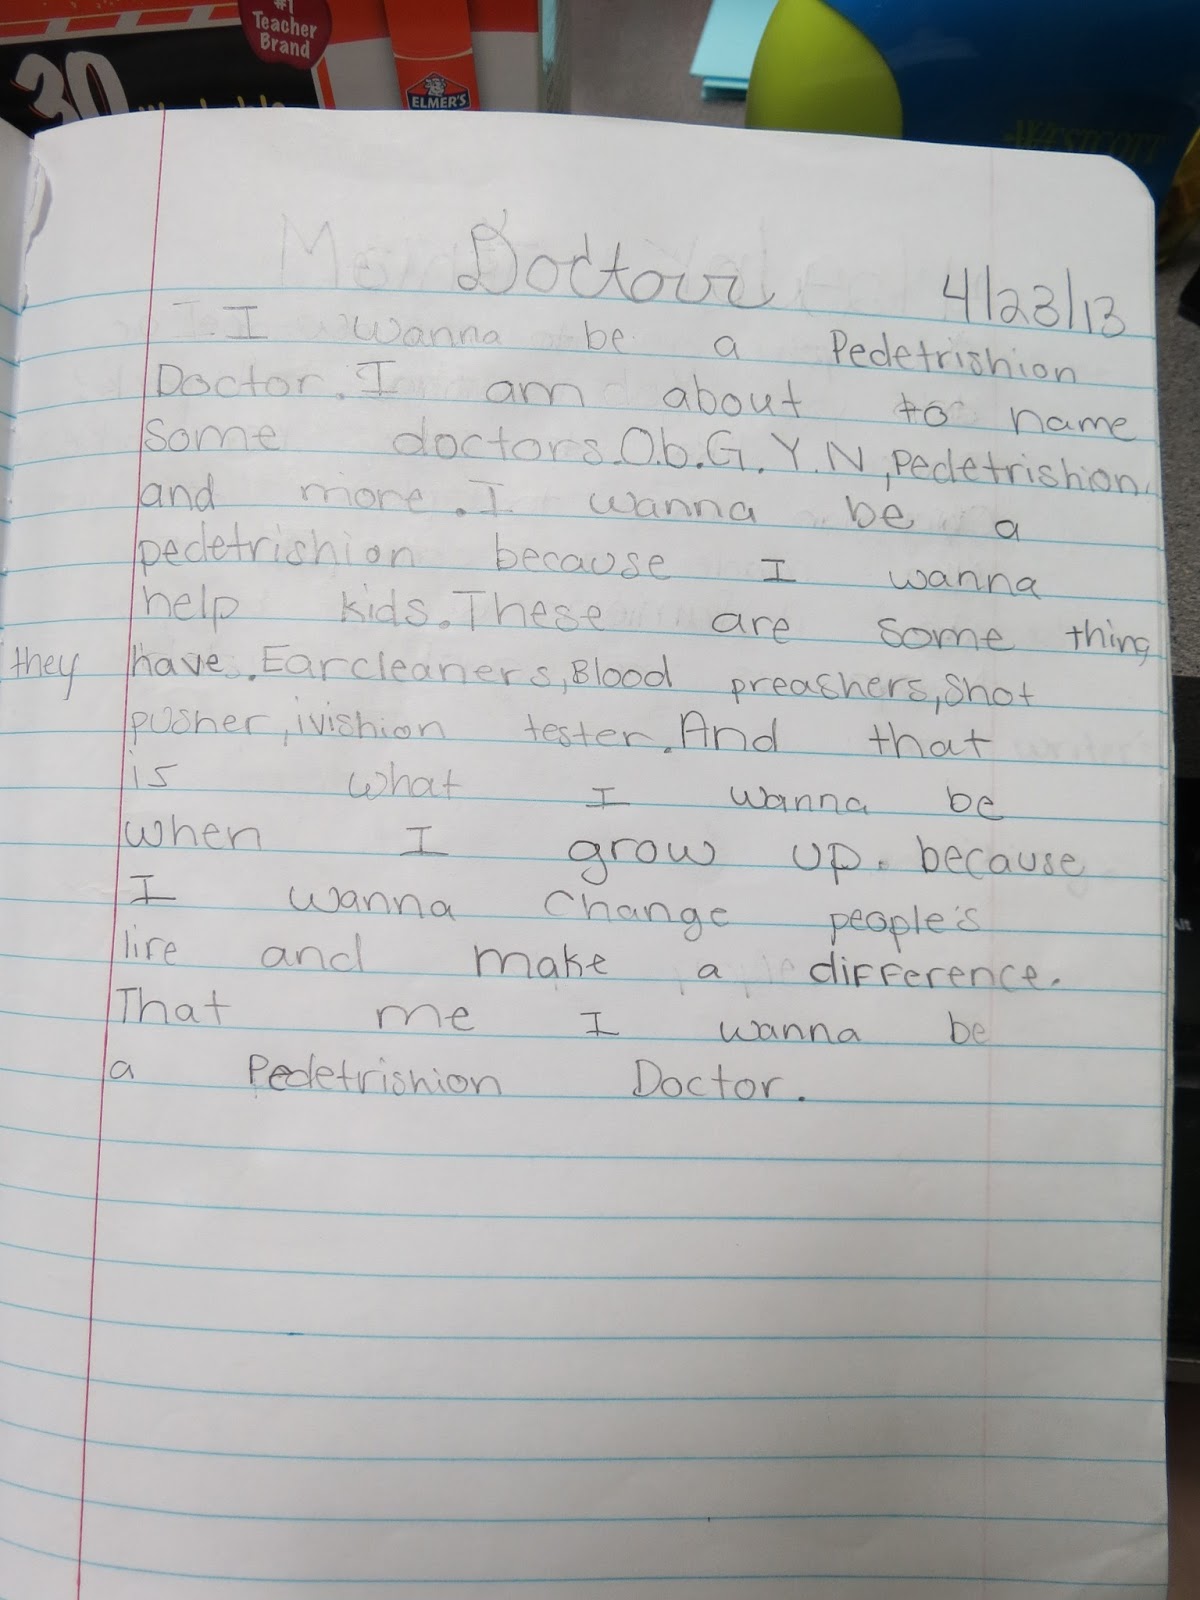 #1
Teacher
Brand
30
ELMER'S
WESTCOTT
Doctour
4/23/13
I wanna be a Pedetrishion
Doctor. I am about to name
some doctors. O.b.G.Y.N, pedetrishion,
and more. I wanna be a
pedetrishion because I wanna
help kids. These are some thing
they have. Earcleaners, Blood preashers, shot
pusher, ivishion tester. And that
is what I wanna be
when I grow up. because
I wanna change people's
lire and make a difference.
That me I wanna be
a Pedetrishion Doctor.